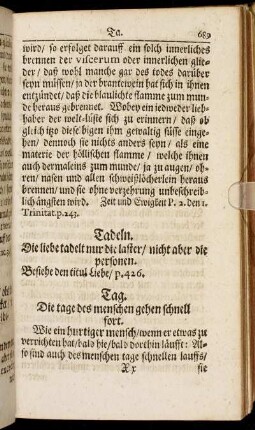 Ta. 689
wird/ so erfolget darauff ein solch innerliches
brennen der viscerum oder innerlichen glie-
der/ daß wohl manche gar des todes darüber
seyn müssen/ ja der brantewein hat sich in ihnen
entzündet/ daß die blaulichte flamme zum mun-
de heraus gebrennet. Wobey ein jedweder lieb-
haber der welt-lüste sich zu erinnern/ daß ob
gleich itzo diese bigen ihm gewaltig süsse einge-
hen/ dennoch sie nichts anders seyn/ als eine
materie der höllischen flamme/ welche ihnen
auch dermaleins zum munde/ ja zu augen/ oh-
ren/ nasen und allen schweißlöcherlein heraus
brennen/ und sie ohne verzehrung unbeschreib-
lich ängsten wird. Zeit und Ewigkeit P. 2. den 1.
Trinitat. p. 243.
Tadeln.
Die liebe tadelt nur die laster/ nicht aber die
personen.
Besiehe den titul Liebe/ p. 426.
Tag.
Die tage des menschen gehen schnell
fort.
Wie ein hurtiger mensch/ wenn er etwas zu
verrichten hat/ bald hie/ bald dorthin läufft: Al-
so sind auch des menschen tage schnellen lauffs/
Xx sie